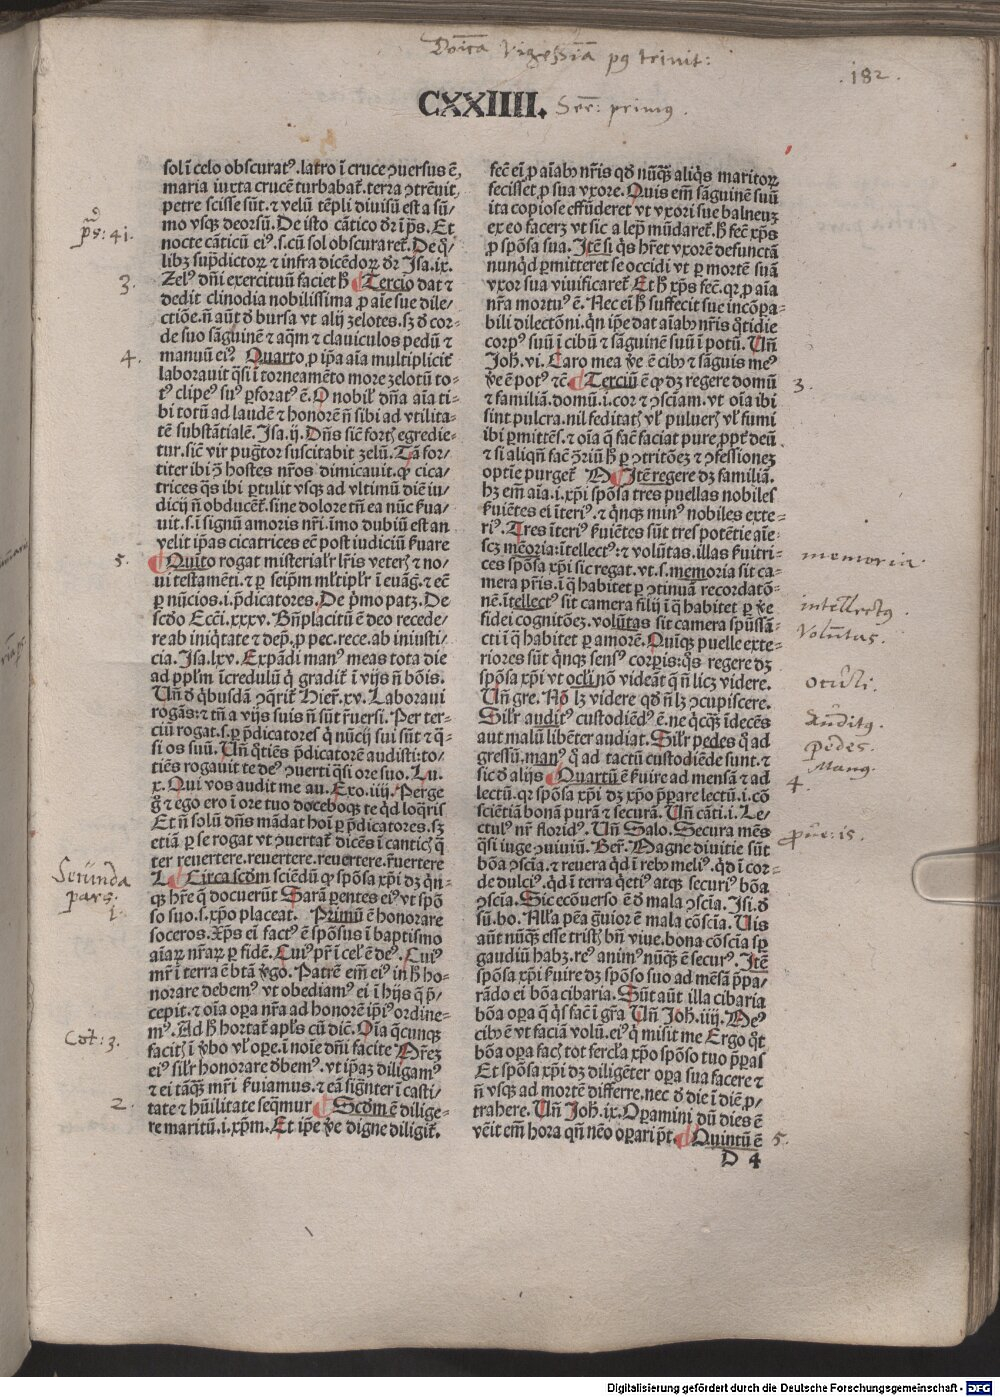 Dn̄ica Vigesſīa pꝯ trinit:
.182.
CXXIIII.
Ser̄: primꝯ.
sol ī celo obscuratꝰ. latro ī cruce ꝯuersus ē,
maria iuxta crucē turbabat᷑. terra ꝯtrēuit,
petre scisse sūt. ⁊ velū tēpli diuisū est a sū/
mo vsqꝫ deorsū. De isto cātico dr̄ ī ps̄. Et
nocte cāticū eiꝰ. s. cū sol obscuraret᷑. De q̄/
libꝫ sup̄dictoꝝ ⁊ infra dicēdoꝝ dr̄ Jsa. ix.
Zelꝰ dn̄i exercituū faciet h̄ Tercio dat ⁊
dedit clinodia nobilissima ꝓ aīe sue dile/
ctiōe. n̄ aūt ð bursa vt alij zelotes. sꝫ ð cor/
de suo sāguinē ⁊ aqm̄ ⁊ clauiculos pedū ⁊
manuū eiꝰ. Quarto ꝓ ip̄a aīa multiplicit᷑
laborauit q̄si ī torneamēto more zelotū to/
tꝰ clipeꝰ suꝰ ꝑforatꝰ ē. O nobil᷑ dn̄a aīa ti/
bi totū ad laudē ⁊ honorē n̄ sibi ad vtilita/
tē substātialē. Jsa. ij. Dn̄s sic̄ fort᷑ egredie/
tur. sic̄ vir pug̃tor suscitabit zelū. Tā for/
titer ibi ꝯ hostes nr̄os dimicauit. qꝙ cica/
trices q̄s ibi ꝑtulit vsqꝫ ad vltimū diē iu/
dicij n̄ obducēt᷑. sine dolore tn̄ ea nūc ẜua/
uit. s. ī signū amoris nr̄i. imo dubiū est an
velit ip̄as cicatrices eē post iudiciū ẜuare
Quīto rogat misterialr̄ lr̄is veter᷑ ⁊ no/
ui testamēti. ⁊ ꝑ seip̄m ml̄tiplr̄ ī euāg̃. ⁊ eē
ꝑ nūcios. i. p̄dicatores. De p̄mo patꝫ. De
scd̄o Ecci. xxxv. Bn̄placitū ē deo recede/
re ab iniq̄tate ⁊ dep̄. ꝓ pec. rece. ab iniusti/
cia. Jsa. lxv. Expādi manꝰ meas tota die
ad pp̄lm īcredulū q̄ gradit᷑ ī vijs n̄ bōis.
Vn̄ ð q̄busdā ꝯq̄rit᷑ Hier̄. xv. Laboraui
rogās: ⁊ tn̄ a vijs suis n̄ sūt r̄uersi. Per ter/
ciū rogat. s. ꝑ p̄dicatores q̄ nūcij sui sūt ⁊ q̄/
si os suū. Vn̄ q̄tiēs p̄dicatorē audisti: to/
tiēs rogauit te deꝰ ꝯuerti q̄si ore suo. Lu.
x. Qui vos audit me au. Exo. iiij. Perge
g̊ ⁊ ego ero ī ore tuo doceboqꝫ te qd̄ loq̄ris
Et n̄ solū dn̄s mādat hoī ꝑ p̄dicatores. sꝫ
etiā ꝑ se rogat vt ꝯuertat᷑ dicēs ī cantic̄ q̄/
ter reuertere. reuertere. reuertere. r̄uertere
Circa scd̄m sciēdū qꝙ spōsa xp̄i dꝫ q̄n/
qꝫ hr̄e q̄ docuerūt Sarā ꝑentes eiꝰ vt spō
so suo. s. xp̄o placeat. Primū ē honorare
soceros. Xp̄s ei factꝰ ē spōsus ī baptismo
aīaꝝ nr̄aꝝ ꝑ fidē. Cuiꝰ pr̄ ī cel᷑ ē deꝰ. Cuiꝰ
mr̄ ī terra ē btā v̄go. Patrē em̄ eiꝰ in h̄ ho/
norare debemꝰ vt obediamꝰ ei ī hijs q̄ p̄/
cepit. ⁊ oīa oꝑa nr̄a ad honorē ip̄iꝰ ordine/
mꝰ. Ad h̄ hortat᷑ apl̄s cū dic̄. Oīa q̄cunqꝫ
facit᷑ ī v̄bo vl̄ oꝑe. ī noīe dn̄i facite Mr̄ez
eiꝰ silr̄ honorare dbemꝰ. vt ip̄aꝫ diligamꝰ
⁊ ei tāqꝫ mr̄i ẜuiamus. ⁊ eā sign̄ter ī casti/
tate ⁊ hūilitate seq̄mur Scd̄m ē dilige/
re maritū. i. xp̄m. Et ip̄e v̄e digne diligit᷑.
fec̄ ei ꝓ aīabꝰ nr̄is qd̄ nūqꝫ aliq̄s maritoꝝ
fecisset ꝓ sua vxore. Quis em̄ sāguinē suū
ita copiose effūderet vt vxori sue balneuꝫ
ex eo facerꝫ vt sic a lep̄ mūdaret᷑. h̄ fec̄ xp̄s
ꝓ spōsa sua. Jtē si q̄s hr̄et vxorē defunctā
nunqd̄ ꝑmitteret se occidi vt ꝑ mortē suā
vxor sua viuificaret᷑. Et h̄ xp̄s fec̄. qꝛ ꝓ aīa
nr̄a mortuꝰ ē. Nec ei h̄ suffecit sue incōꝑa/
bili dilectōni. q̄n ip̄e dat aīabꝰ nr̄is q̄tidie
corpꝰ suū ī cibū ⁊ sāguinē suū ī potū. Vn̄
Joh̄. vi. Caro mea v̄e ē cibꝰ ⁊ sāguis meꝰ
v̄e ē potꝰ ⁊c̄ Terciū ē qꝙ dꝫ regere domū
⁊ familiā. domū. i. cor ⁊ ꝯsciam. vt oīa ibi
sint pulcra. nil feditat᷑ vl̄ puluer᷑ vl̄ fumi
ibi ꝑmittēs. ⁊ oīa q̄ fac̄ faciat pure ꝓpt̄ deū
⁊ si aliqn̄ fac̄ ꝯriū h̄ ꝑ ꝯtritōeꝫ ⁊ ꝯfessioneꝫ
optīe purget᷑ Jtē regere dꝫ familiā.
hꝫ em̄ aīa. i. xp̄i spōsa tres puellas nobiles
ẜuiētes ei īteriꝰ. ⁊ q̄nqꝫ minꝰ nobiles exte/
riꝰ. Tres īteriꝰ ẜuiētes sūt tres potētie aīe/
scꝫ memoria: ītellectꝰ: ⁊ volūtas. illas ẜuitri/
ces spōsa xp̄i sic regat. vt. s. memoria sit ca/
mera pr̄is. ī q̄ habitet ꝑ ꝯtinuā recordatō/
nē. ītellectꝰ sit camera filij ī q̄ habitet ꝑ v̄e
fidei cognitōeꝫ. volūtas sit camera sp̄ūssā/
cti ī q̄ habitet ꝑ amorē. Quīqꝫ puelle exte/
riores sūt q̄nqꝫ sensꝰ corꝑis: q̄s regere dꝫ
spōsa xp̄i vt ocl̄i nō videāt q̄ n̄ licꝫ videre.
Vn̄ gre. Nō lꝫ videre qd̄ n̄ lꝫ ꝯcupiscere.
Silr̄ auditꝰ custodiēdꝰ ē. ne q̄cqꝫ īdecēs
aut malū libēter audiat. Silr̄ pedes q̊ ad
gressū. manꝰ q̊ ad tactū custodiēde sunt. ⁊
sic ð alijs Quartū ē ẜuire ad mensā ⁊ ad
lectū. qꝛ spōsa xp̄i dꝫ xp̄o p̄ꝑare lectū. i. cō
sciētiā bonā purā ⁊ securā. Vn̄ cāti. i. Le/
ctulꝰ nr̄ floridꝰ. Vn̄ Salo. Secura mēs
q̄si iuge ꝯuiuiū. Ber̄. Magne diuitie sūt
bōa ꝯscīa. ⁊ reuera qd̄ ī rebꝰ meliꝰ. qd̄ ī cor/
de dulciꝰ. qd̄ ī terra q̄tiꝰ atqꝫ securiꝰ bōa
ꝯscīa. Sic ecōuerso ē ð mala ꝯscīa. Jsi. ð
sū. bo. Al̄la pēa g̃uior ē mala cōscīa. Vis
aūt nūqꝫ esse trist᷑ bn̄ viue. bona cōscīa sꝑ
gaudiū habꝫ. reꝰ animꝰ nūqꝫ ē securꝰ. Jtē
spōsa xp̄i ẜuire dꝫ spōso suo ad mēsā p̄ꝑa/
rādo ei bōa cibaria. Sūt aūt illa cibaria
bōa oꝑa q̄ q̄s fac̄ ī gr̄a Vn̄ Joh̄. iiij. Meꝰ
cibꝰ ē vt faciā volū. eiꝰ q̄ misit me Ergo q̊t
bōa oꝑa fac᷑ tot fercl̄a xp̄o spōso tuo p̄ꝑas
Et spōsa xp̄i dꝫ diligēter oꝑa sua facere ⁊
n̄ vsqꝫ ad mortē differre. nec ð die ī diē ꝓ/
trahere. Vn̄ Joh̄. ix. Oꝑamini dū dies ē
vēit em̄ hora qn̄ nēo oꝑari pt̄. Quintū ē
D 4
ps: 41.
3.
4.
5.
Secūnda
pars.
1.
Col: 3.
2.
3.
memoria.
intellectꝰ.
Volūtus.
oculi.
Auditꝰ.
pedes.
Manꝰ.
4.
prou: 15.
5.
Digitalisierung gefördert durch die Deutsche Forschungsgemeinschaft - DFG